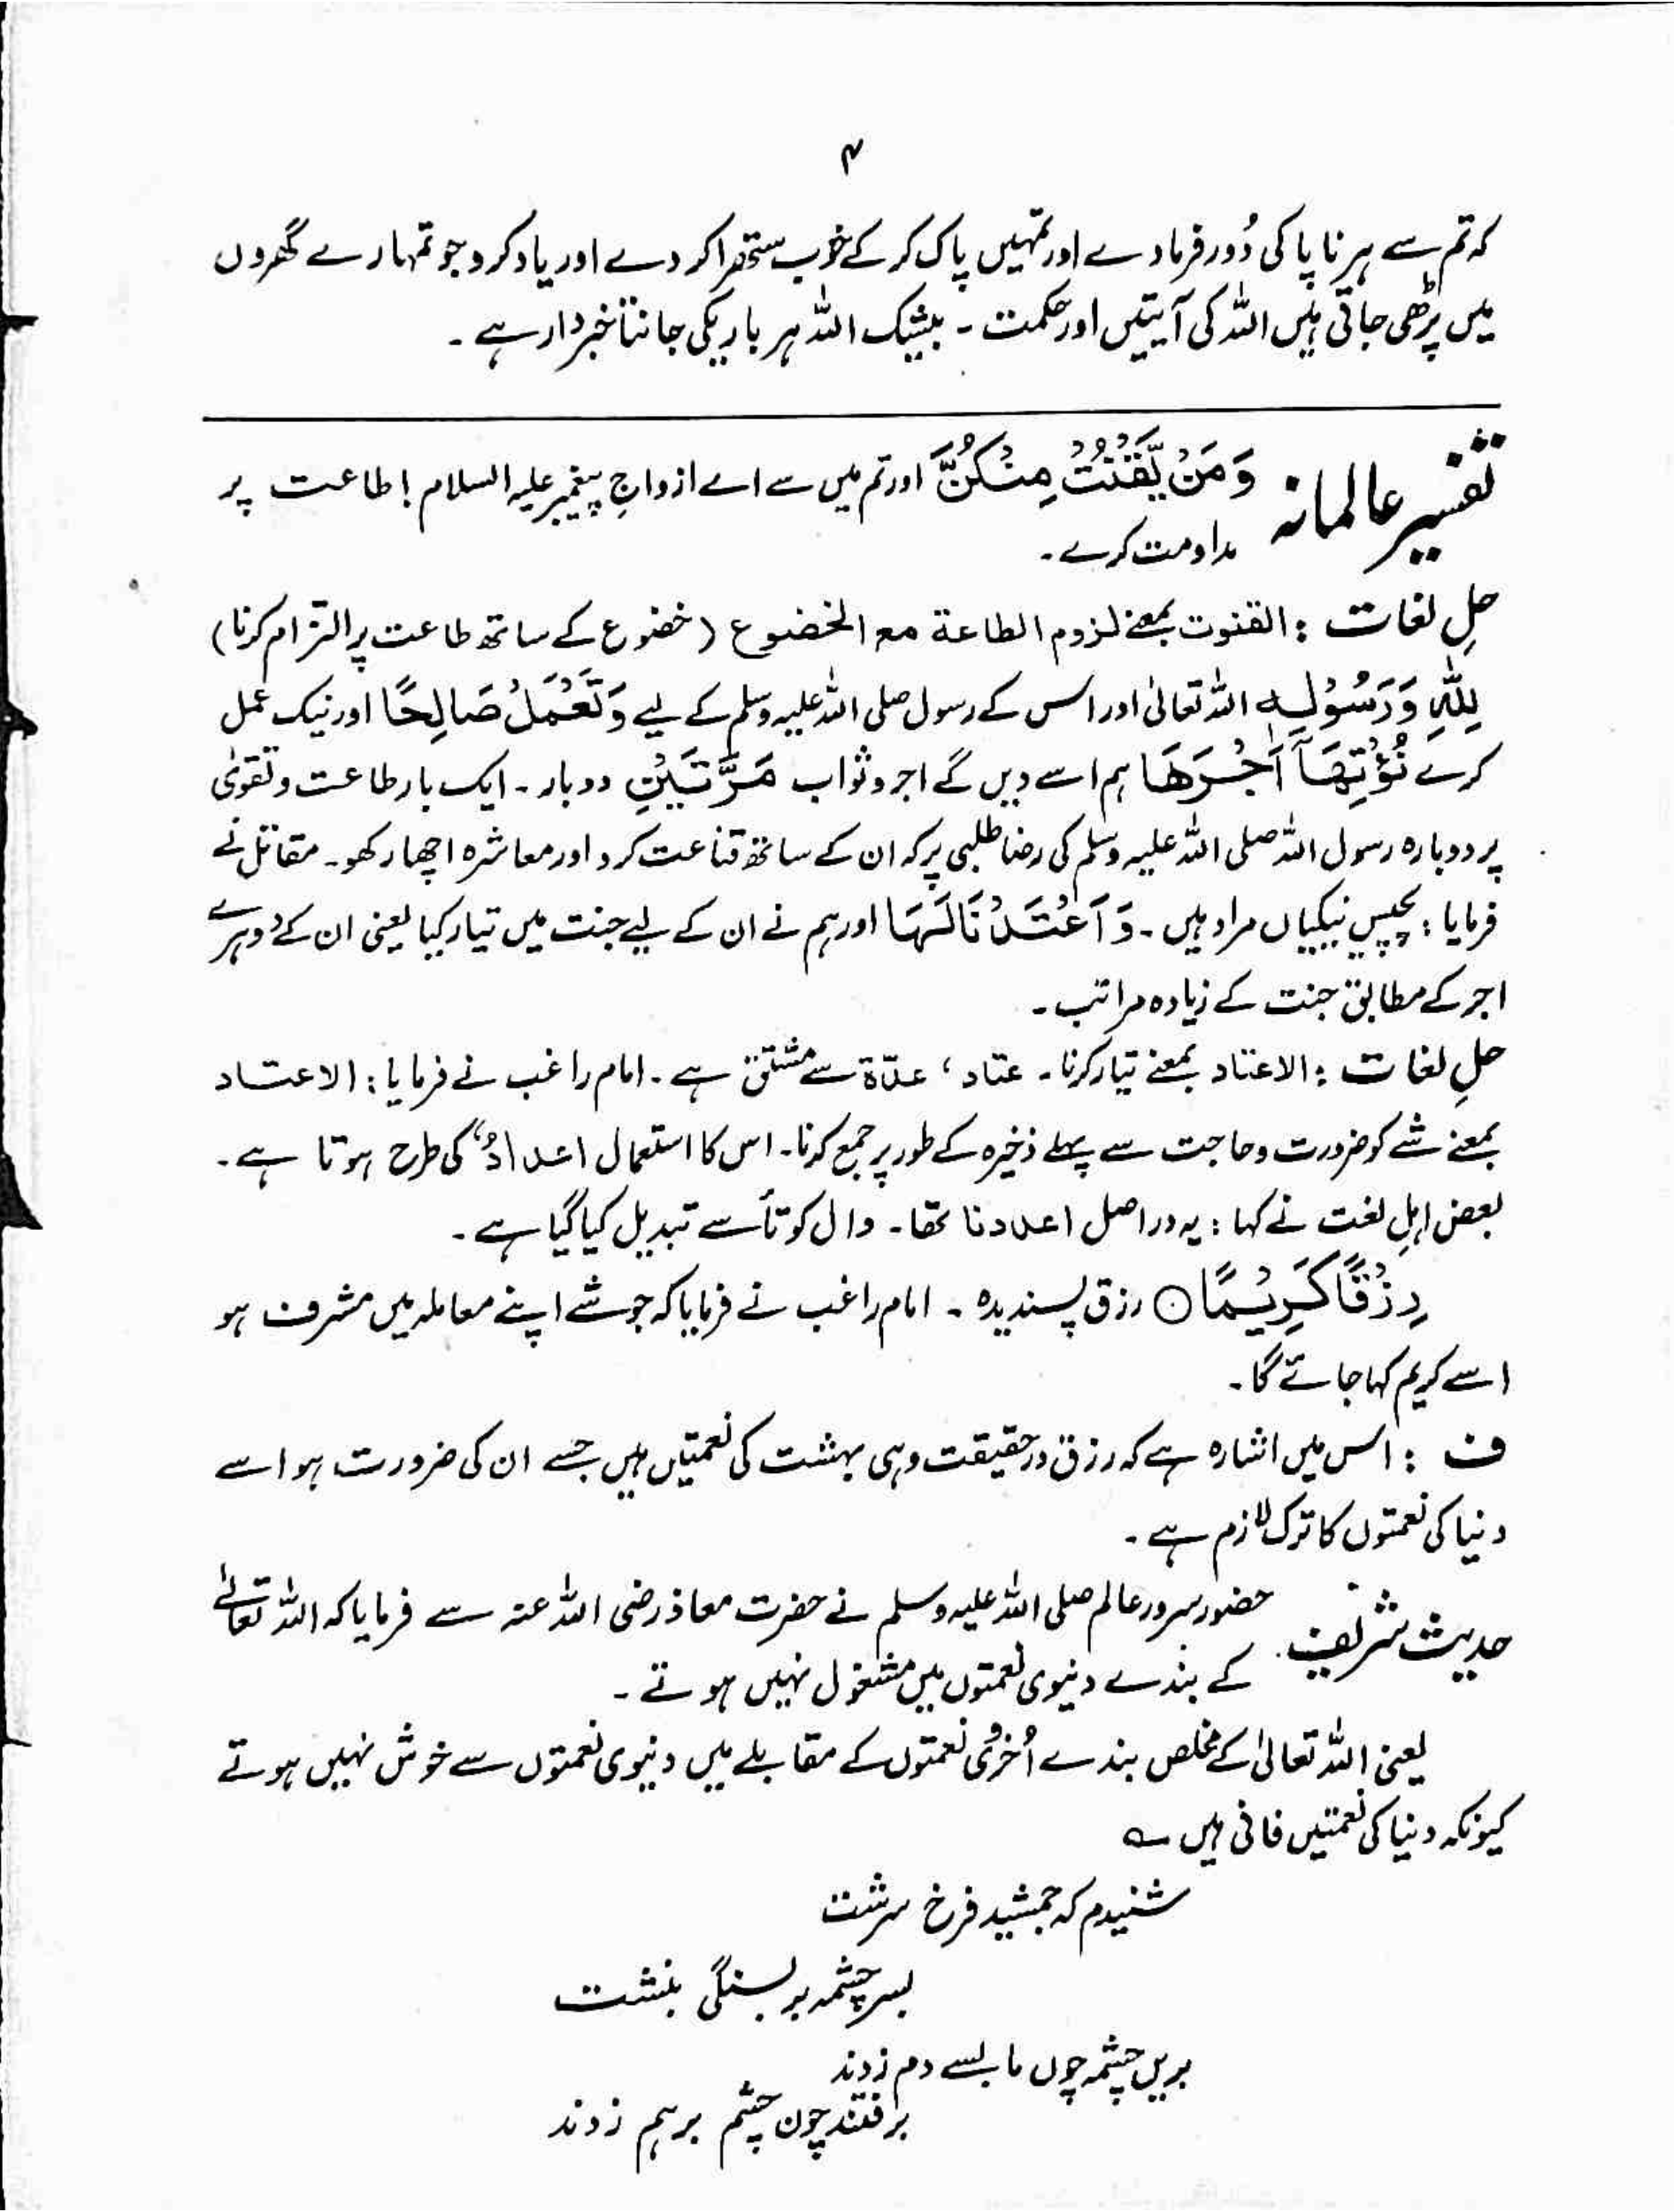 ۴
کہ تم سے ہر ناپاکی دُور فرما دے اور تمہیں پاک کر کے خوب ستھرا کر دے اور یاد کرو جو تمہارے گھروں
میں پڑھی جاتی ہیں اللہ کی آیتیں اور حکمت ۔ بیشک اللہ ہر باریکی جانتا خبردار ہے ۔
تفسیر عالمانہ وَمَنْ يَّقْنُتْ مِنْكُنَّ اور تم میں سے اے ازواجِ پیغمبر علیہ السلام ! طاعت پر
مداومت کرے ۔
حلِ لغات : القنوت بمعنے لزوم الطاعۃ مع الخضوع (خضوع کے ساتھ طاعت پر التزام کرنا)
لِلّٰهِ وَرَسُوْلِهٖ اللہ تعالیٰ اور اس کے رسول صلی اللہ علیہ وسلم کے لیے وَتَعْمَلْ صَالِحًا اور نیک عمل
کرے نُؤْتِهَآ اَجْرَهَا ہم اسے دیں گے اجر و ثواب مَرَّتَيْنِ دو بار ۔ ایک بار طاعت و تقویٰ
پر دوبارہ رسول اللہ صلی اللہ علیہ وسلم کی رضا طلبی پر کہ ان کے ساتھ قناعت کرو اور معاشرہ اچھا رکھو ۔ مقاتل نے
فرمایا : پچیس نیکیاں مراد ہیں ۔ وَ اَعْتَدْنَا لَهَا اور ہم نے ان کے لیے جنت میں تیار کیا یعنی ان کے دُوہرے
اجر کے مطابق جنت کے زیادہ مراتب ۔
حلِ لغات : الاعتاد بمعنے تیار کرنا ۔ عتاد ، عدّۃ سے مشتق ہے ۔ امام راغب نے فرمایا : الاعتاد
بمعنے شے کو ضرورت و حاجت سے پہلے ذخیرہ کے طور پر جمع کرنا ۔ اس کا استعمال اعدادُ کی طرح ہوتا ہے ۔
بعض اہلِ لغت نے کہا : یہ دراصل اعددنا تھا ۔ دال کو تأ سے تبدیل کیا گیا ہے ۔
رِزْقًا كَرِيْمًا ۝ رزق پسندیدہ ۔ امام راغب نے فرمایا کہ جو شے اپنے معاملہ میں مشرف ہو
اسے کریم کہا جائے گا ۔
ف : اس میں اشارہ ہے کہ رزق درحقیقت وہی بہشت کی نعمتیں ہیں جسے ان کی ضرورت ہو اسے
دنیا کی نعمتوں کا ترک لازم ہے ۔
حدیث شریف حضور سرور عالم صلی اللہ علیہ وسلم نے حضرت معاذ رضی اللہ عنہ سے فرمایا کہ اللہ تعالےٰ
کے بندے دنیوی نعمتوں میں مشغول نہیں ہوتے ۔
یعنی اللہ تعالیٰ کے مخلص بندے اُخرُوی نعمتوں کے مقابلے میں دنیوی نعمتوں سے خوش نہیں ہوتے
کیونکہ دنیا کی نعمتیں فانی ہیں ؎
شنیدم کہ جمشید فرخ سرشت
بسر چشمہ بر بسنگی بنشت
بریں چشمہ چوں ما بسے دم زدند
برفتند چون چشم برہم زدند